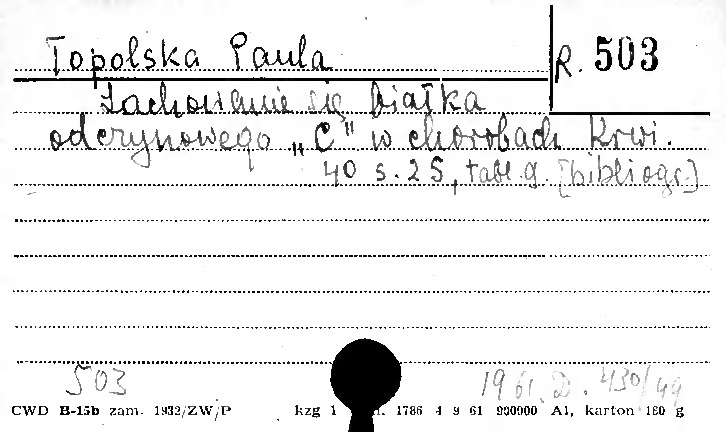 Topolska Paula R. 503
Zachowanie się białka
odczynowego „C" w chorobach Krwi.
40 s. 25, tabl. 9. [bibliogr.]
503 1961. D. 430/49
CWD B-15b zam. 1932/ZW/P kzg 1 1786 4 9 61 900000 A1, karton 180 g